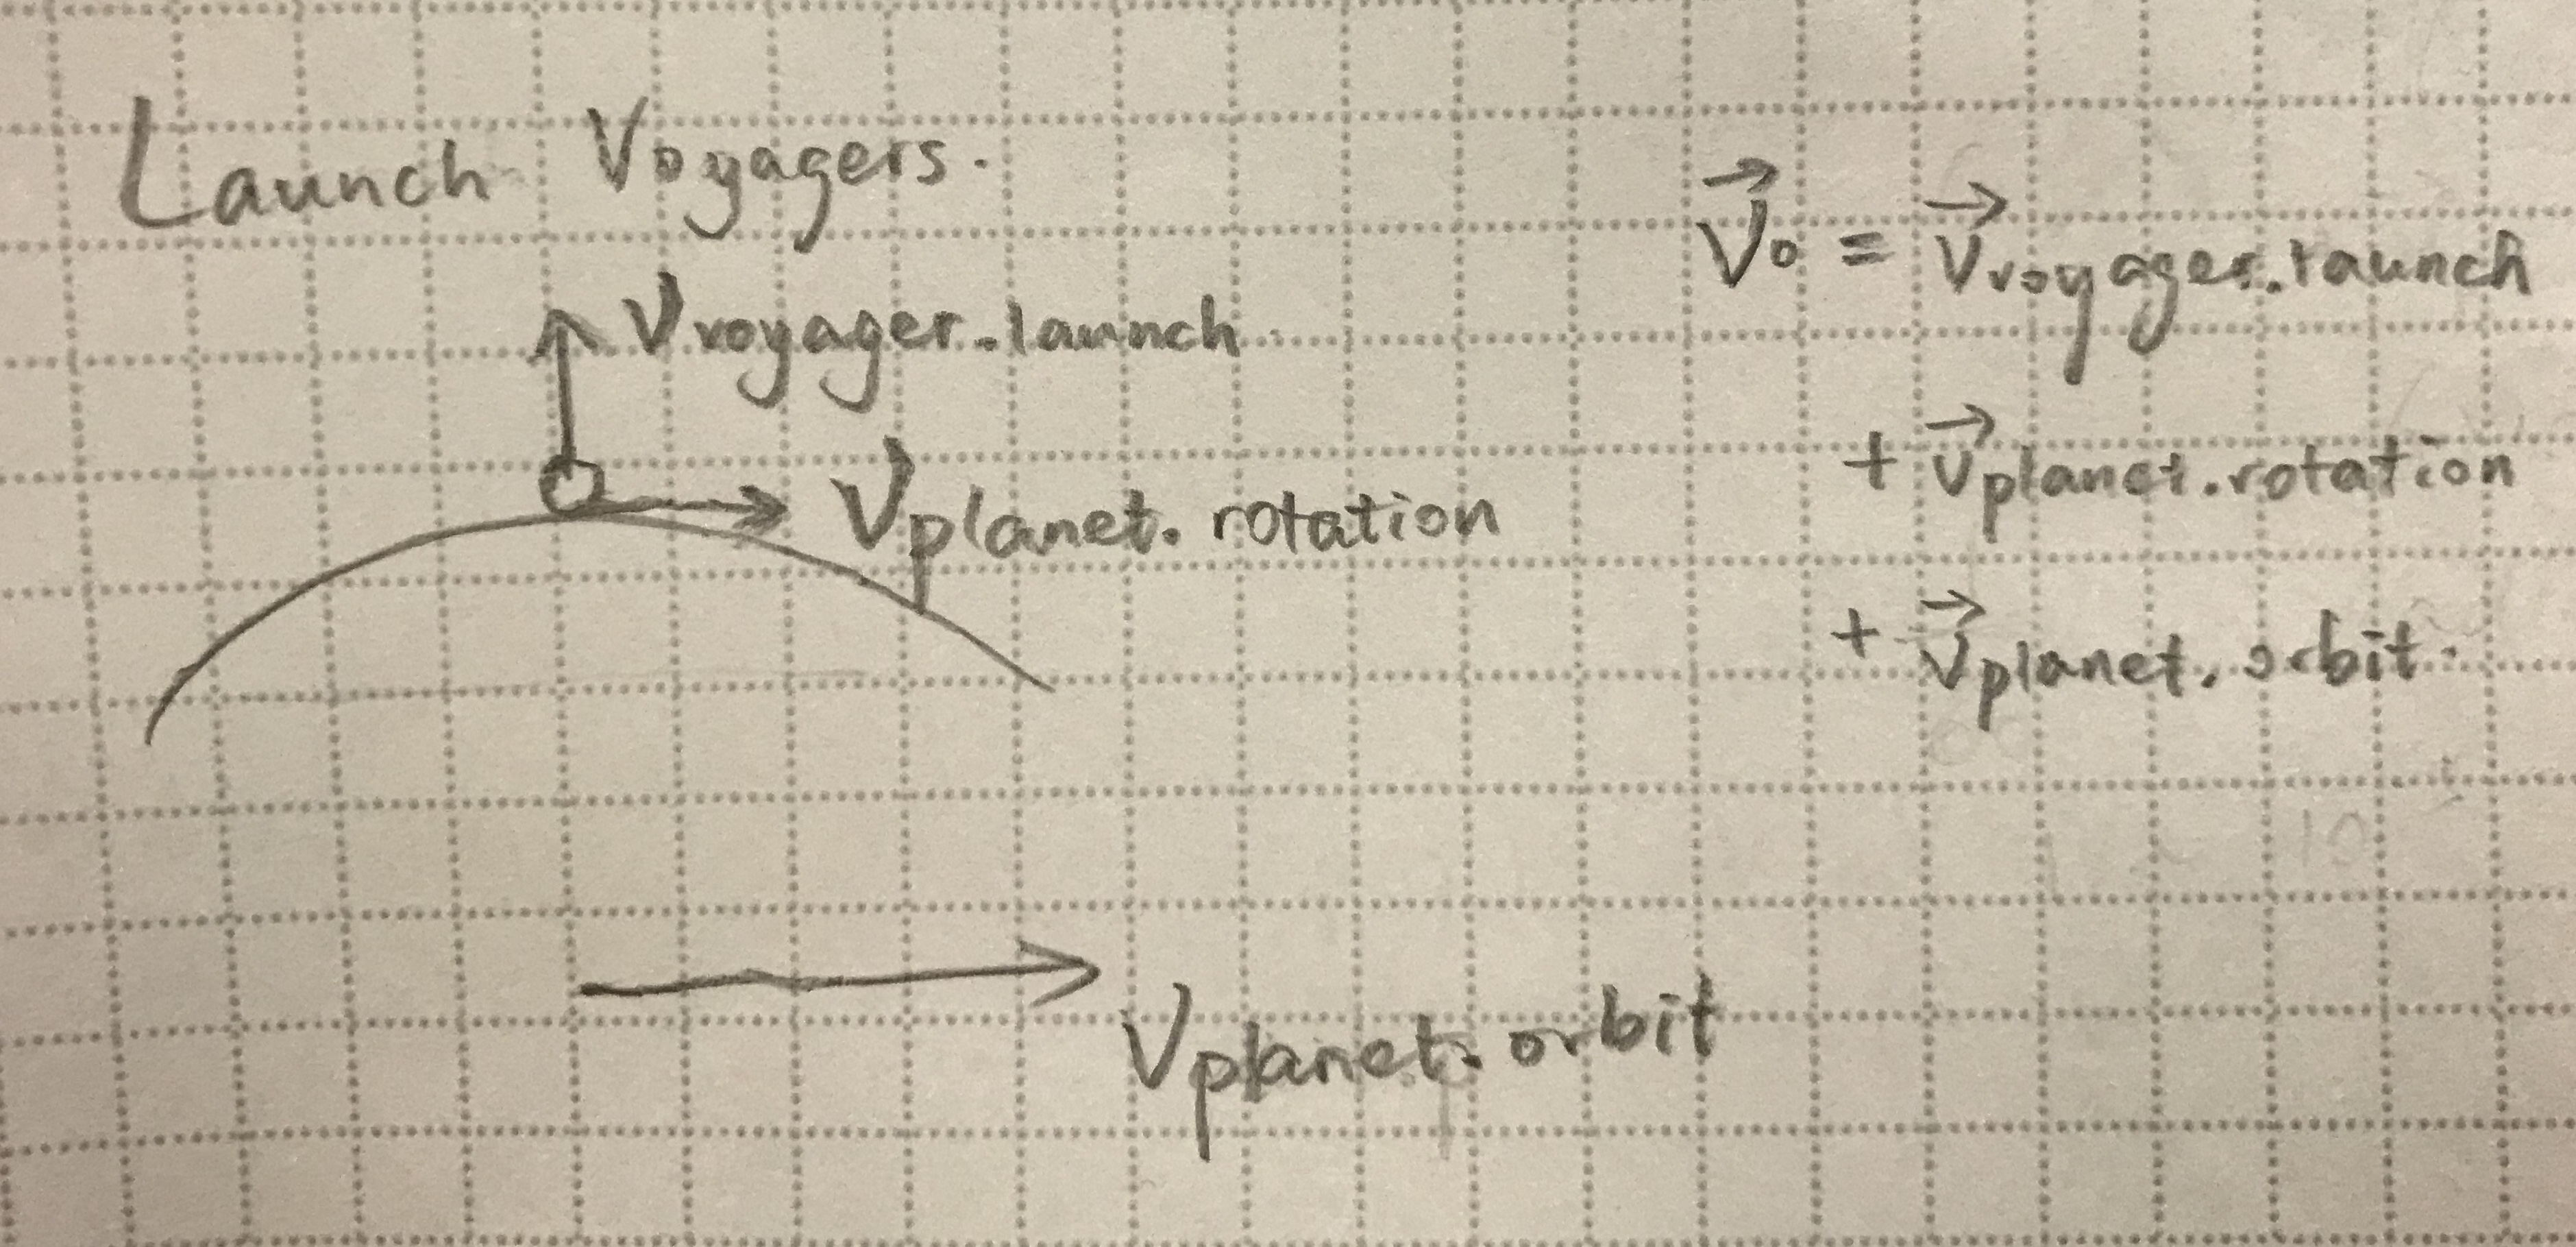 Launch Voyagers.
V voyager.launch
V planet.rotation
V planet.orbit
V0 = V voyager.launch
+ V planet.rotation
+ V planet.orbit.